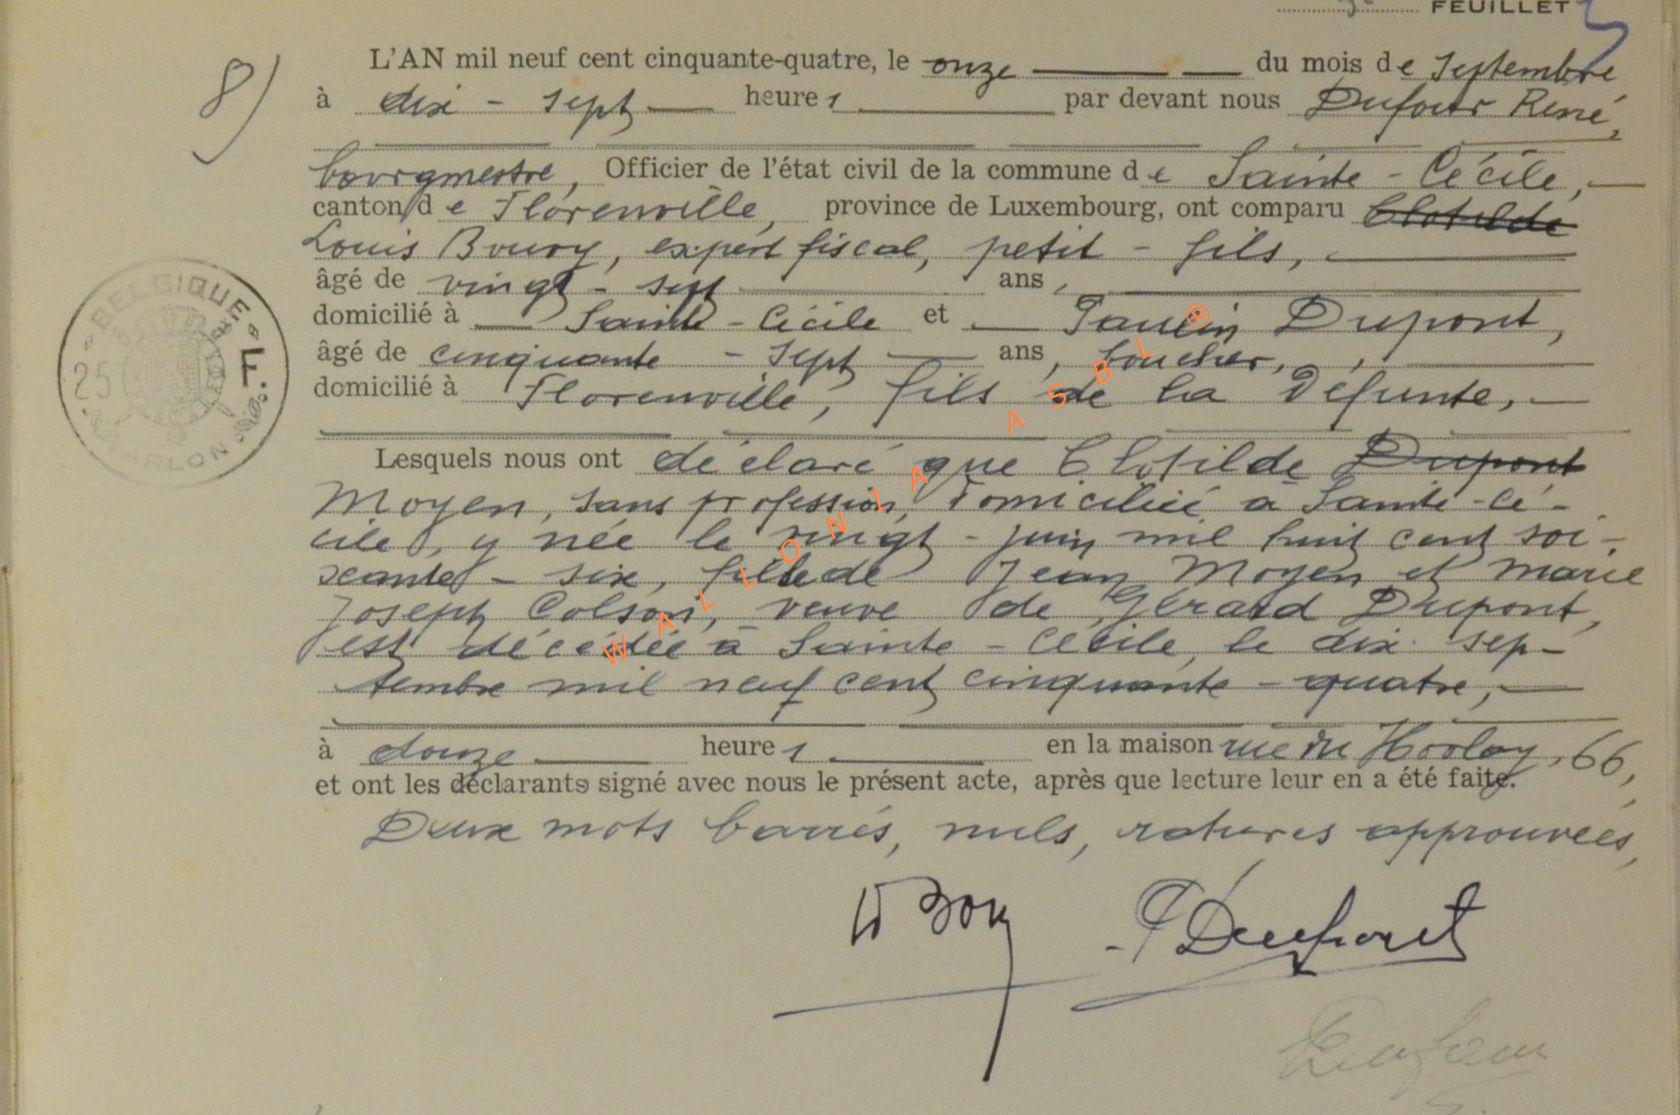 5e FEUILLET
8)
L'AN mil neuf cent cinquante-quatre, le onze du mois de septembre
à dix-sept heures par devant nous Dufour René,
bourgmestre, Officier de l'état civil de la commune de Sainte-Cécile,
canton de Florenville, province de Luxembourg, ont comparu Clotilde
Louis Boury, expert fiscal, petit-fils,
âgé de vingt-sept ans,
domicilié à Sainte-Cécile et Paulin Dupont,
âgé de cinquante-sept ans, boucher,
domicilié à Florenville, fils de la Défunte,
Lesquels nous ont déclaré que Clotilde Dupont
Moyen, sans profession, domiciliée à Sainte-Cé-
cile, y née le vingt-juin mil huit cent soi-
xante-six, fille de Jean Moyen et Marie
Joseph Colson, veuve de Gérard Dupont,
est décédée à Sainte-Cécile, le dix sep-
tembre mil neuf cent cinquante-quatre,
à douze heures en la maison rue du 66,
et ont les déclarants signé avec nous le présent acte, après que lecture leur en a été faite.
Deux mots barrés, nuls, ratures approuvées,
BELGIQUE
25 F.
ARLON
WALLONIA ASBL ®
P Dupont
Dufour